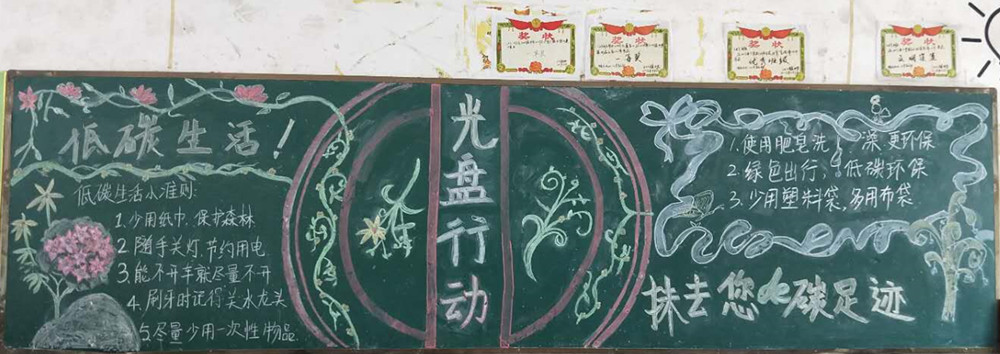 奖状
奖状
一等奖
奖状
优秀班级
奖状
低碳生活！
低碳生活小准则:
1.少用纸巾、保护森林
2.随手关灯.节约用电
3.能不开车就尽量不开
4.刷牙时记得关水龙头
5.尽量少用一次性物品.
光盘行动
1.使用肥皂洗澡,更环保
2.绿色出行,低碳环保
3.少用塑料袋,多用布袋
抹去您的碳足迹